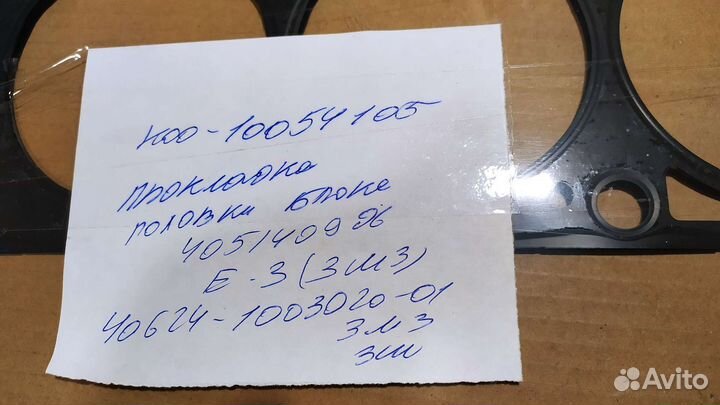 К00-10054105
Прокладка
головки блока
40514099Х
Е-3 (ЗМЗ)
40624-1003020-01
ЗМЗ
3ш
Avito